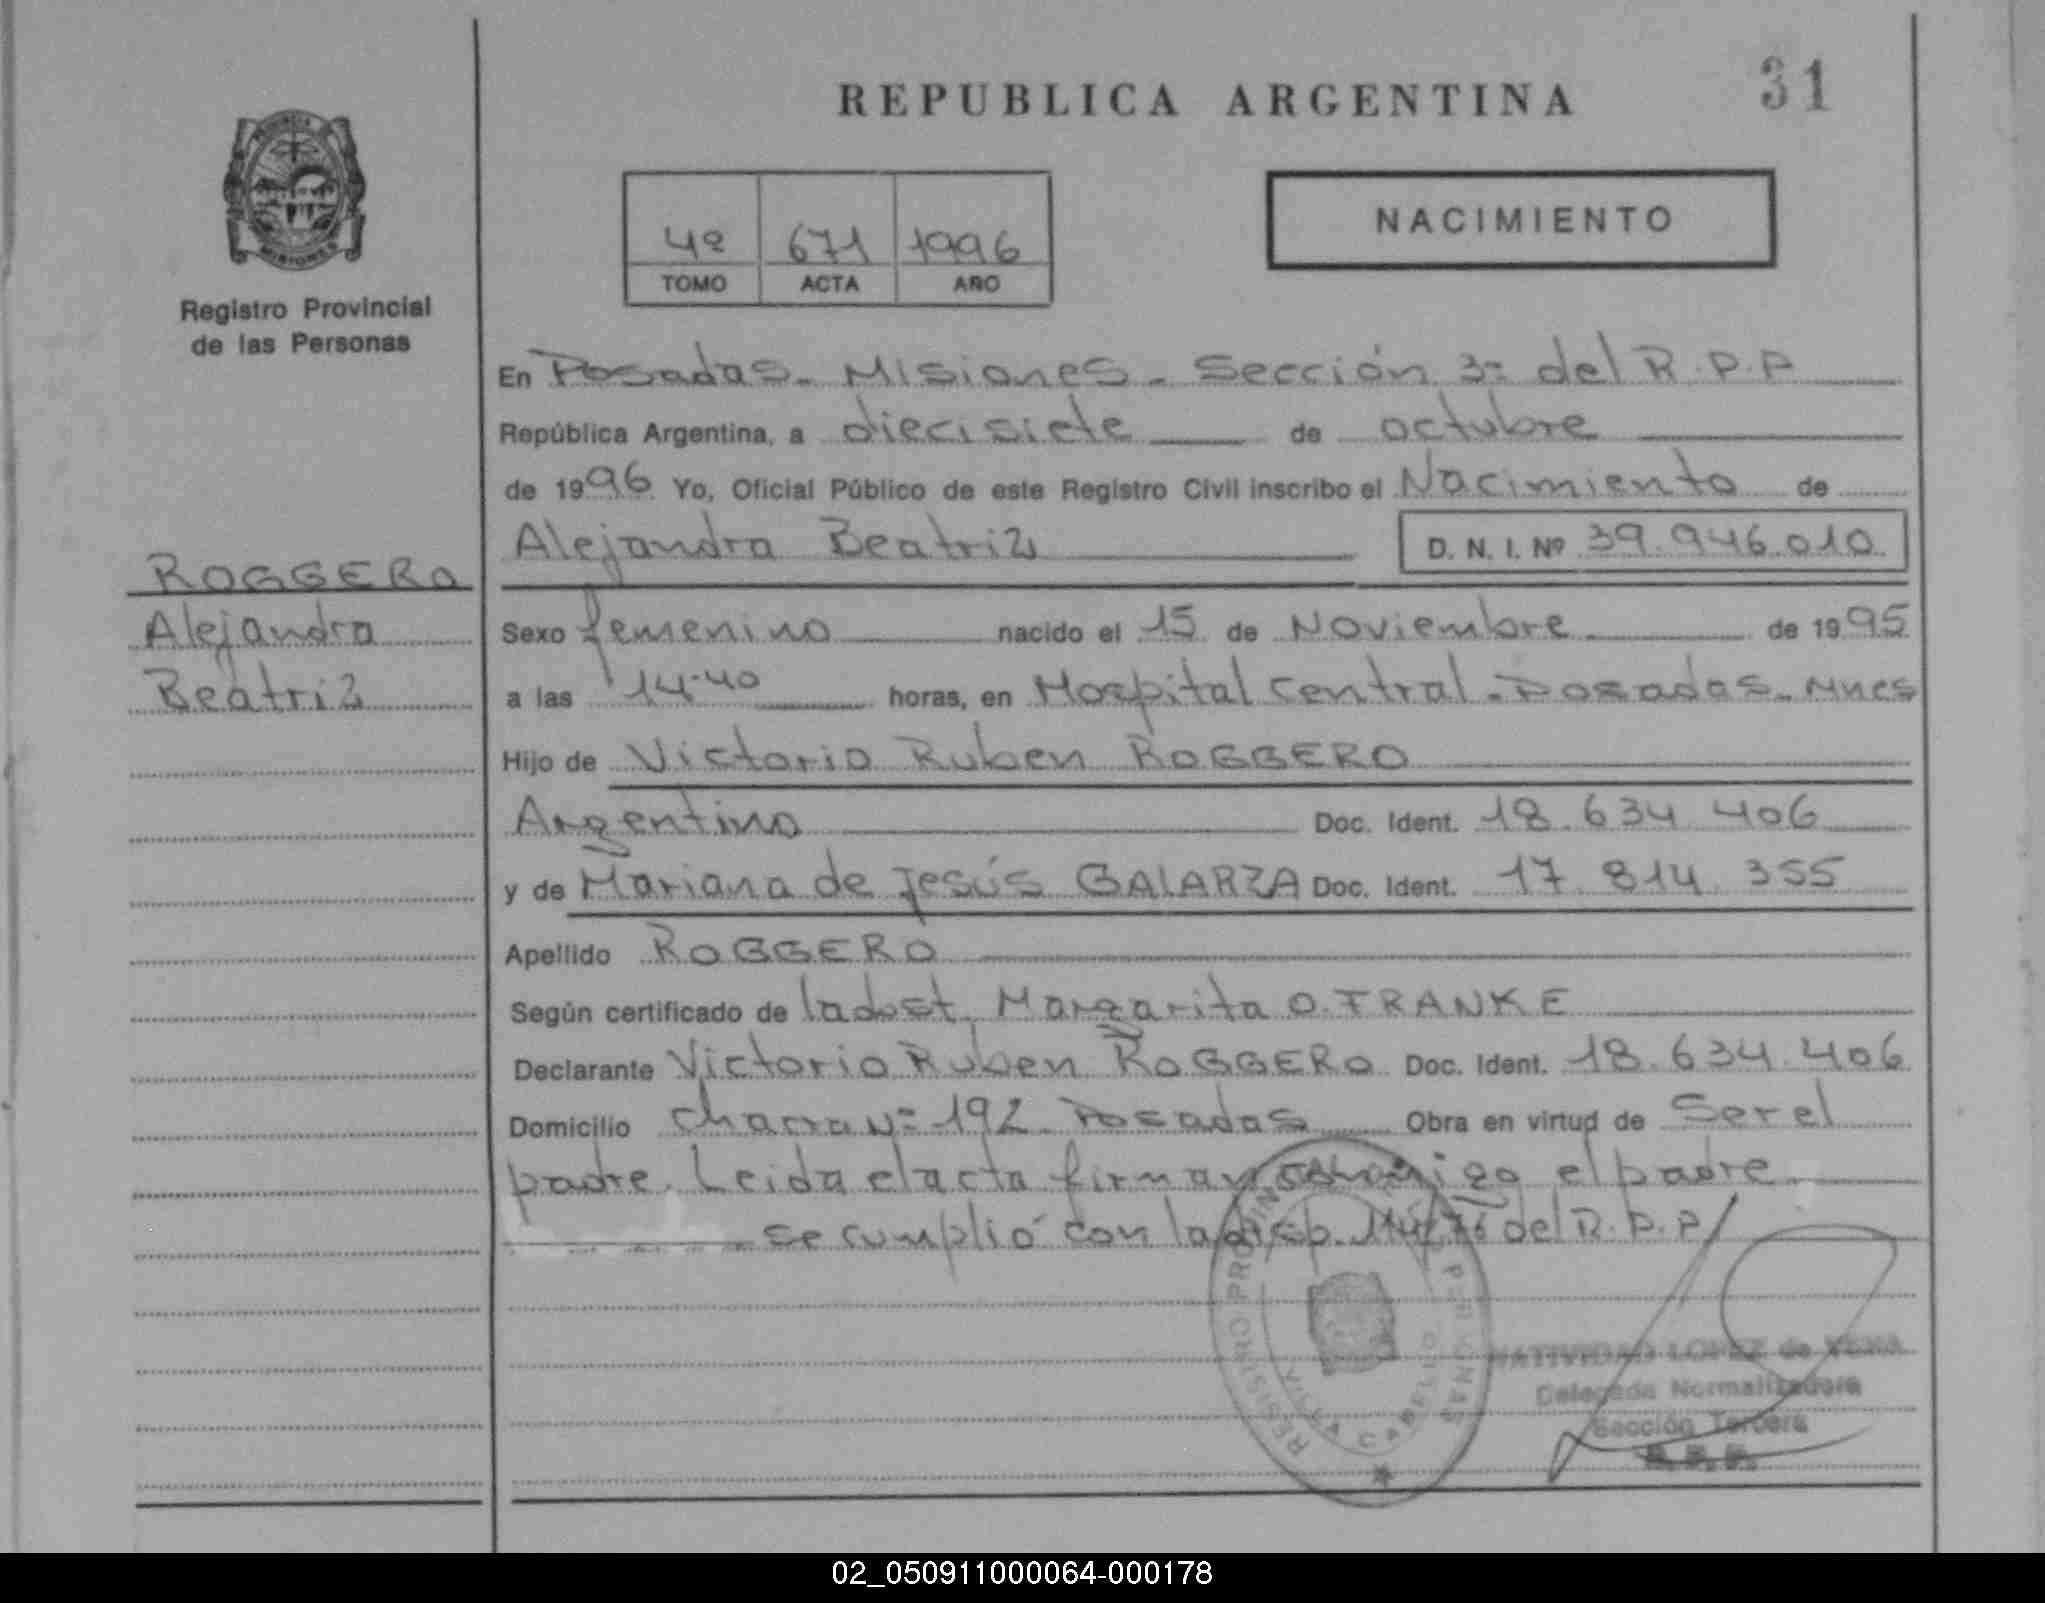 REPUBLICA ARGENTINA
31
PROVINCIA DE
MISIONES
Registro Provincial
de las Personas
4º 671 1996
TOMO ACTA AÑO
NACIMIENTO
En Posadas - Misiones - Sección 3= del R.P.P
República Argentina, a diecisiete de octubre
de 1996 Yo, Oficial Público de este Registro Civil inscribo el Nacimiento de
Alejandra Beatriz D. N. I. Nº 39.946.010
ROGGERO
Alejandra
Beatriz
Sexo femenino nacido el 15 de Noviembre de 1995
a las 14.40 horas, en Hospital Central - Posadas - Mnes
Hijo de Victorio Ruben ROGGERO
Argentino Doc. Ident. 18.634.406
y de Mariana de Jesús GALARZA Doc. Ident. 17.814.355
Apellido ROGGERO
Según certificado de la obst. Margarita O. FRANKE
Declarante Victorio Ruben ROGGERO Doc. Ident. 18.634.406
Domicilio Chacra Nº 192 Posadas Obra en virtud de Ser el
padre. Leida el acta firma conmigo el padre
se cumplió con la disp. 114/76 del R.P.P/
REGISTRO PROVINCIAL PERSONAS
VILLA CABELLO
NATIVIDAD LOPEZ de VERA
Delegada Normalizadora
Sección Tercera
R. P. P.
02_050911000064-000178